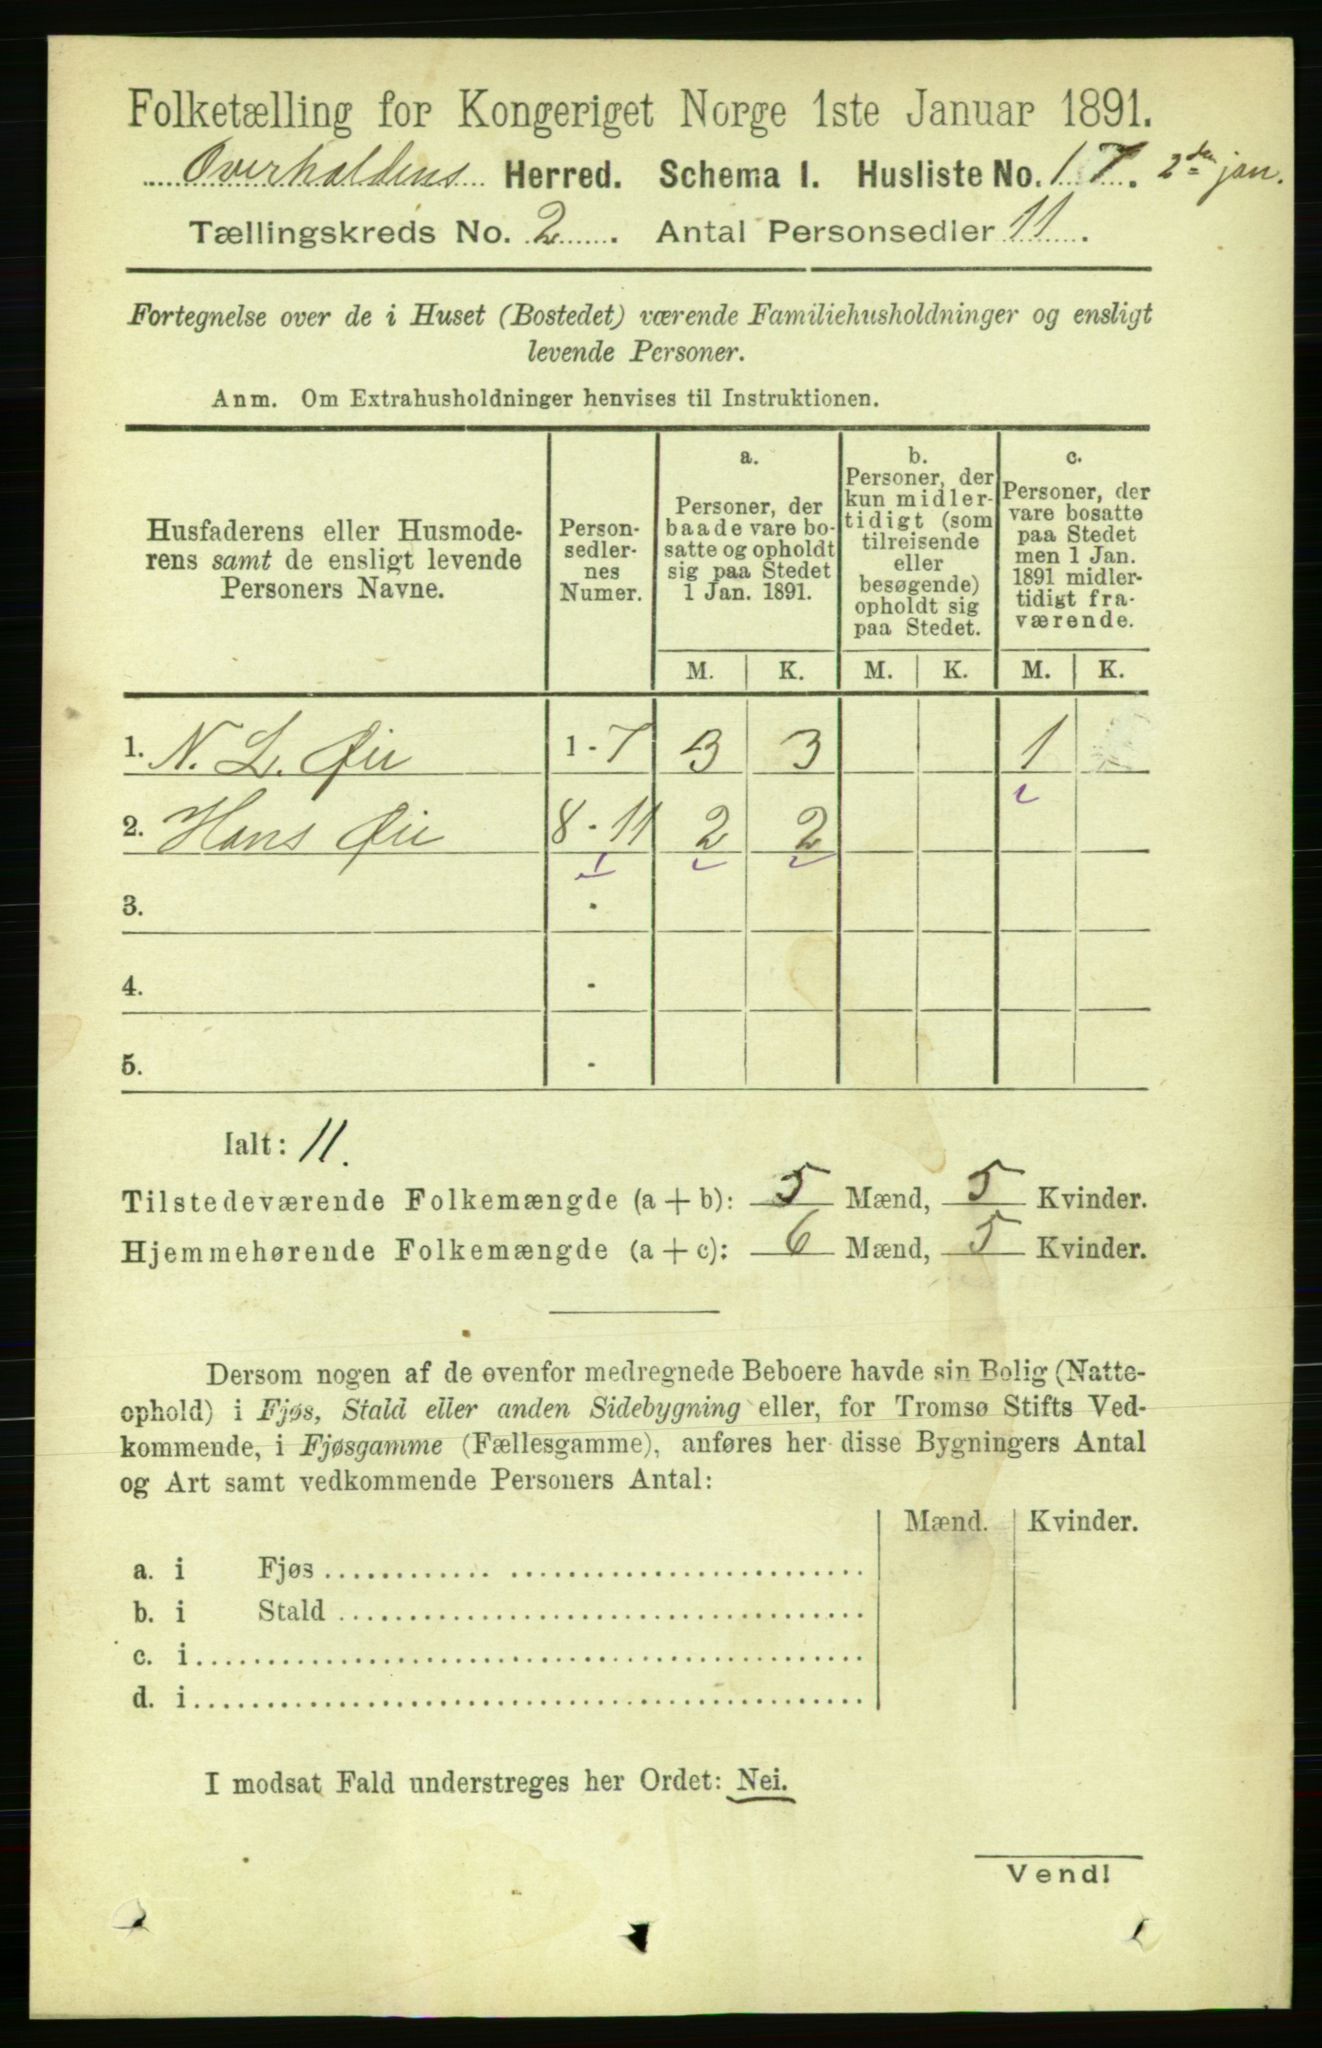 Folketælling for Kongeriget Norge 1ste Januar 1891.
Overhaldens Herred. Schema I. Husliste No. 17. 2den jan.
Tællingskreds No. 2. Antal Personsedler 11.
Fortegnelse over de i Huset (Bostedet) værende Familiehusholdninger og ensligt
levende Personer.
Anm. Om Extrahusholdninger henvises til Instruktionen.
Husfaderens eller Husmode-
rens samt de ensligt levende
Personers Navne.
Person-
sedler-
nes
Numer.
a.
Personer, der
baade vare bo-
satte og opholdt
sig paa Stedet
1 Jan. 1891.
b.
Personer, der
kun midler-
tidigt (som
tilreisende
eller
besøgende)
opholdt sig
paa Stedet.
c.
Personer, der
vare bosatte
paa Stedet
men 1 Jan.
1891 midler-
tidigt fra-
værende.
M. K. M. K. M. K.
1. N. L. Øie 1-7 3 3 1
2. Hans Øie 8-11 2 2
3. -
4. -
5. -
Ialt: 11.
Tilstedeværende Folkemængde (a + b): 5 Mænd, 5 Kvinder.
Hjemmehørende Folkemængde (a + c): 6 Mænd, 5 Kvinder.
Dersom nogen af de ovenfor medregnede Beboere havde sin Bolig (Natte-
ophold) i Fjøs, Stald eller anden Sidebygning eller, for Tromsø Stifts Ved-
kommende, i Fjøsgamme (Fællesgamme), anføres her disse Bygningers Antal
og Art samt vedkommende Personers Antal:
Mænd. Kvinder.
a. i Fjøs
b. i Stald
c. i
d. i
I modsat Fald understreges her Ordet: Nei.
Vend!